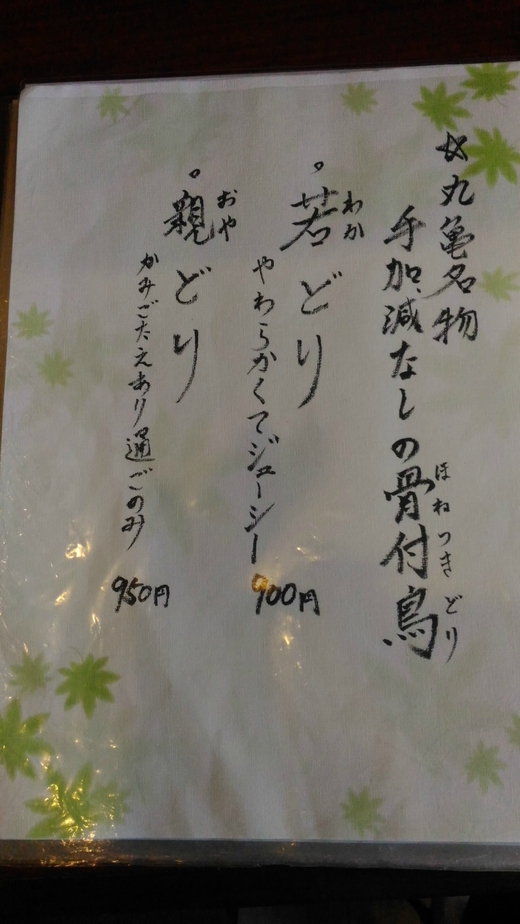 丸亀名物
手加減なしの骨付鳥
ほねつきどり
・若どり
わか
やわらかくてジューシー
900円
・親どり
おや
かみごたえあり通ごのみ
950円